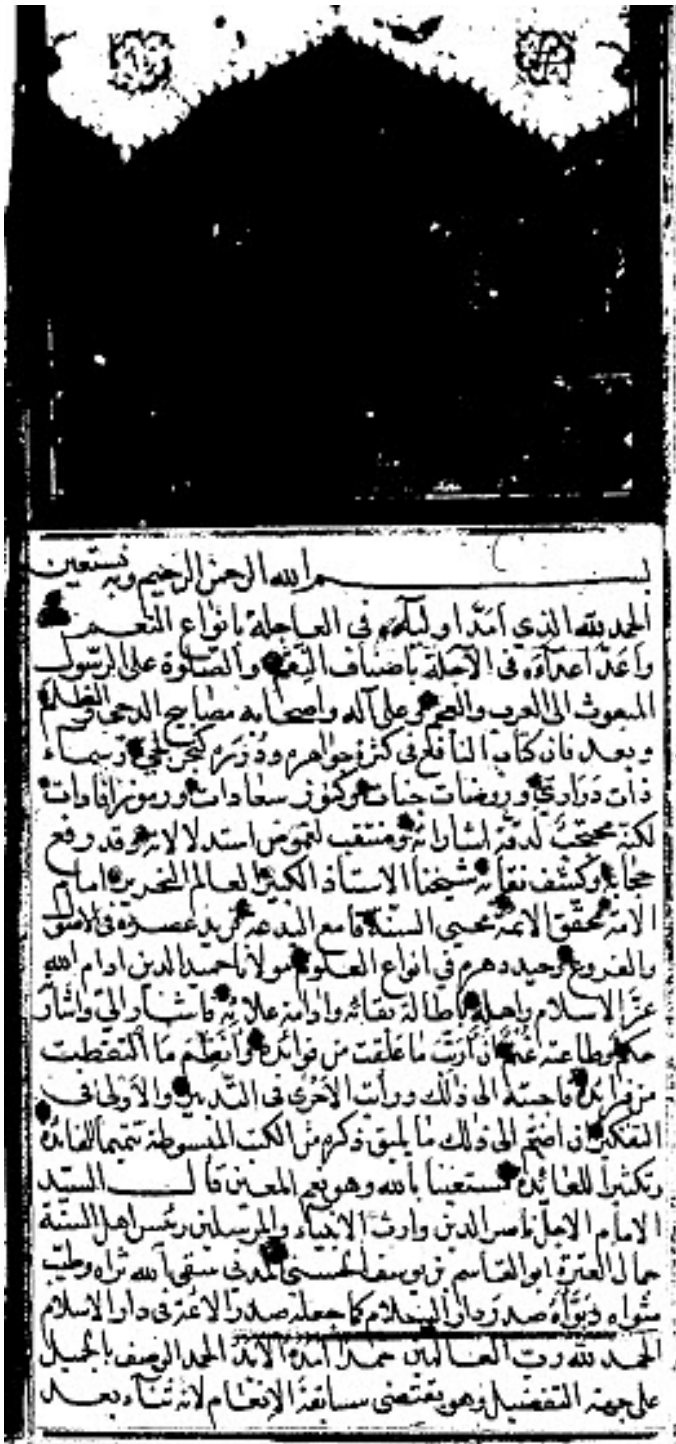 بسم الله الرحمن الرحيم وبه نستعين
الحمد لله الذي امدّ اولياءه في العاجلة بانواع النعم
واعدّ اعداءه في الآجلة باضياف النقم والصلوة على الرسول
المبعوث الى العرب والعجم وعلى آله واصحابه مصابيح الدجى والظلم
وبعد فان كتاب النافع في كثرة جواهره ودرره كبحر لجي وسماء
ذات دراري وروضات جنات وكنوز سعادات ورموز افادات
لكنه محتجب لدقة اشاراته ومنتقب لغموض استدلالاته وقد رفع
حجابه وكشف نقابه شيخنا الاستاذ الكبير العالم النحرير امام
الامة محقق الائمة محيي السنة قامع البدعة فريد عصره في الاصول
والفروع وحيد دهره في انواع العلوم مولانا حميد الدين ادام الله
عزّ الاسلام واهله باطالة بقائه وادامة علائه فاشار اليّ واشارته
حكم وطاعته غنم ان ارتب ما علقت من فوائده وانظم ما التقطت
من فرائده فاجبته الى ذلك ورأيت الاحرى في التدبير والاولى في
التفكير ان اضم الى ذلك ما يليق ذكره من الكتب المبسوطة تتميما للفائدة
وتكثيرا للعائدة مستعينا بالله وهو نعم المعين قال السيد
الامام الاجل ناصر الدين وارث الانبياء والمرسلين رئيس اهل السنة
جمال العترة ابو القاسم بن يوسف الحسيني المدني سقى الله ثراه وطيب
مثواه وبوّأه صدر دار السلام كما جعله صدر الاعزة في دار الاسلام
الحمد لله رب العالمين حمدا امده الابد الحمد الوصف بالجميل
على جهة التفضيل وهو يقتضي سابقة الانعام لانه ثناء بعد